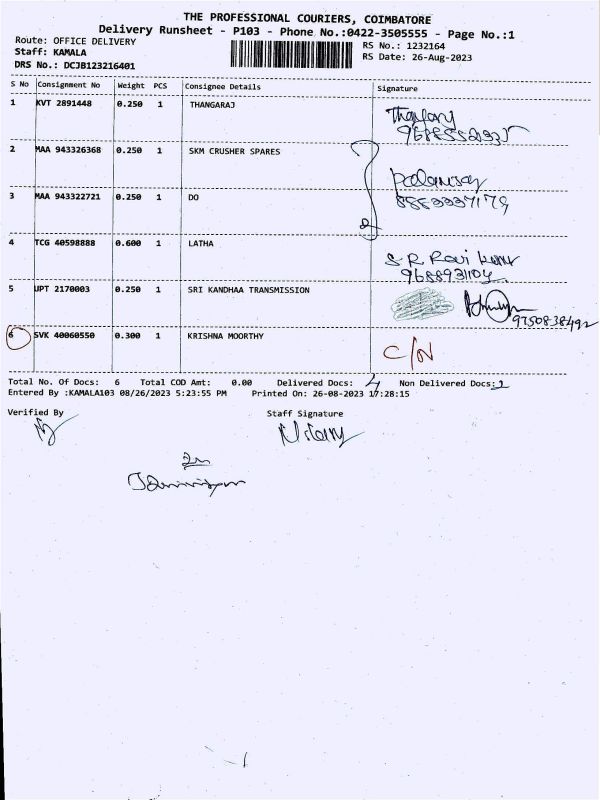 THE PROFESSIONAL COURIERS, COIMBATORE
Delivery Runsheet - P103 - Phone No.:0422-3505555 - Page No.:1
Route: OFFICE DELIVERY
RS No.: 1232164
Staff: KAMALA
RS Date: 26-Aug-2023
DRS No.: DCJB123216401
S No Consignment No Weight PCS Consignee Details Signature
1 KVT 2891448 0.250 1 THANGARAJ
2 MAA 943326368 0.250 1 SKM CRUSHER SPARES
3 MAA 943322721 0.250 1 DO
8883337179
4 TCG 40598888 0.600 1 LATHA
S.R Ravi kumar
9688931104
5 UPT 2170003 0.250 1 SRI KANDHAA TRANSMISSION
9750838492
6 SVK 40060550 0.300 1 KRISHNA MOORTHY
C/N
Total No. Of Docs: 6 Total COD Amt: 0.00 Delivered Docs: 4 Non Delivered Docs:
Entered By :KAMALA103 08/26/2023 5:23:55 PM Printed On: 26-08-2023 17:28:15
Verified By Staff Signature